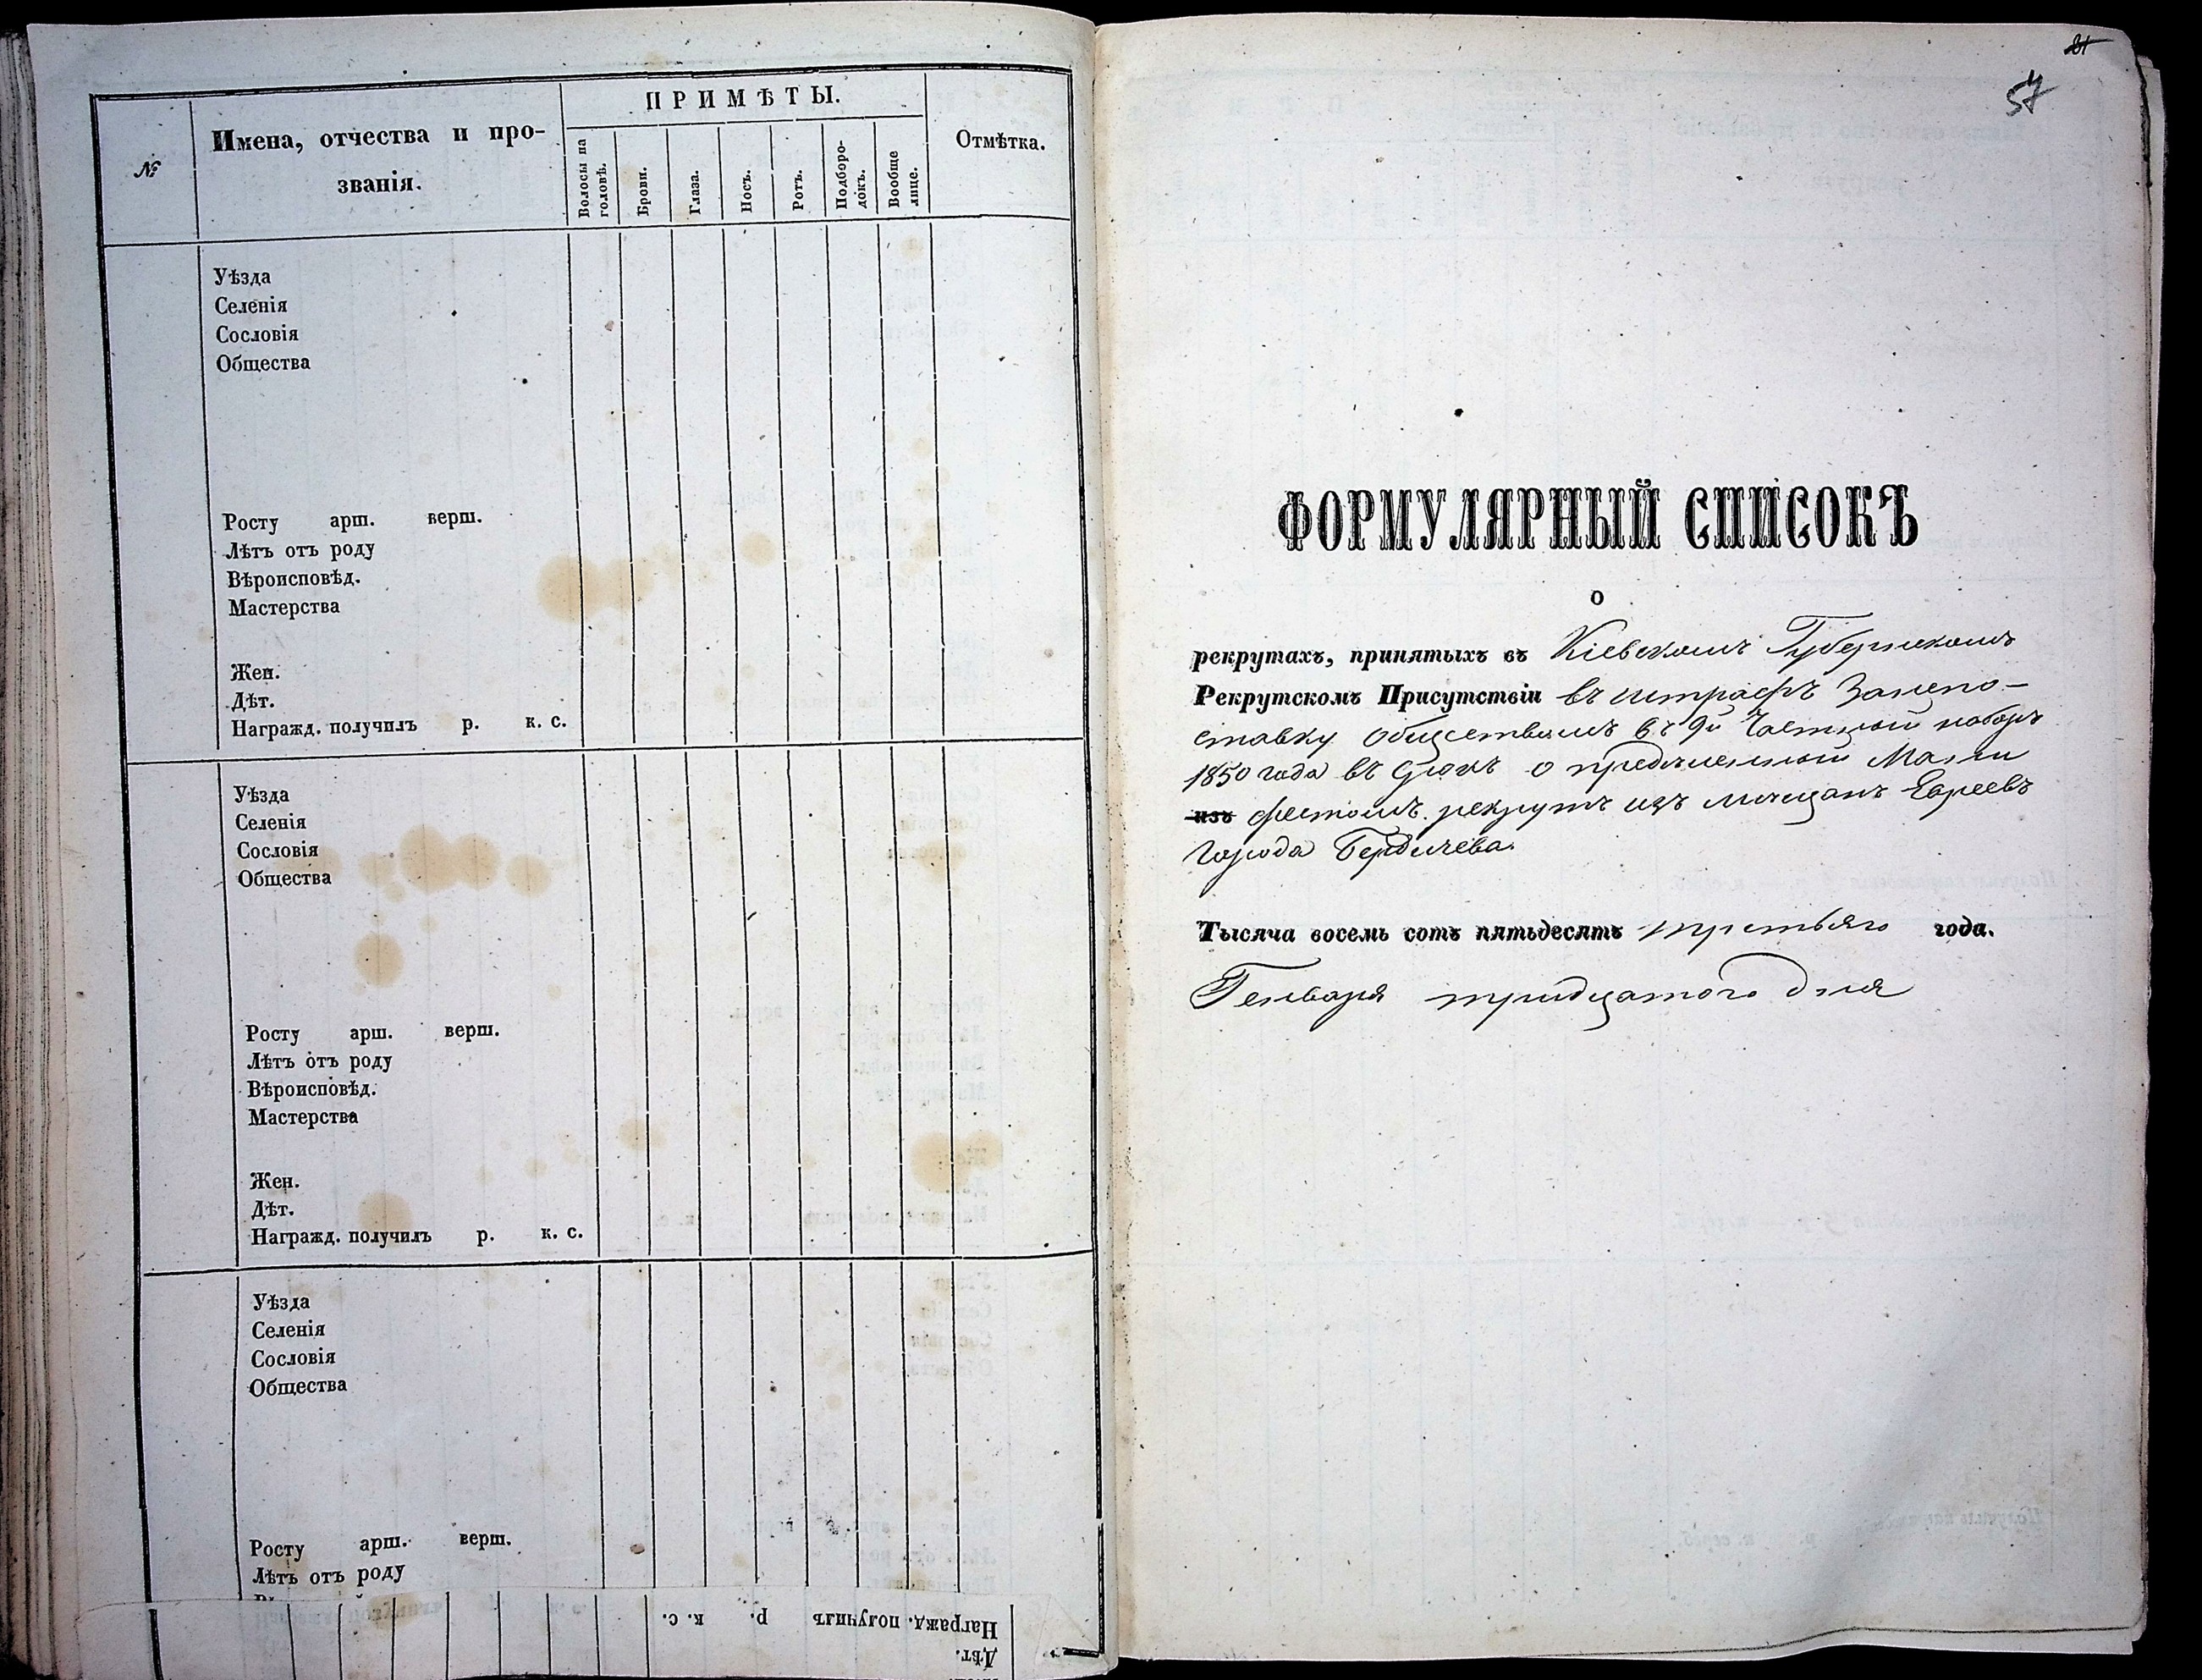 №
Имена, отчества и про-
званія.
ПРИМѢТЫ.
Волосы на
головѣ.
Брови.
Глаза.
Носъ.
Ротъ.
Подборо-
докъ.
Вообще
лице.
Отмѣтка.
Уѣзда
Селенія
Сословія
Общества
Росту арш. верш.
Лѣтъ отъ роду
Вѣроисповѣд.
Мастерства
Жен.
Дѣт.
Награжд. получилъ р. к. с.
Уѣзда
Селенія
Сословія
Общества
Росту арш. верш.
Лѣтъ отъ роду
Вѣроисповѣд.
Мастерства
Жен.
Дѣт.
Награжд. получилъ р. к. с.
Уѣзда
Селенія
Сословія
Общества
Росту арш. верш.
Лѣтъ отъ роду
Награжд. получилъ р. к. с.
Дѣт.
81
57
ФОРМУЛЯРНЫЙ СПИСОКЪ
о
рекрутахъ, принятыхъ въ Кіевскомъ Губернскомъ
Рекрутскомъ Присутствіи въ штрафъ За непо-
ставку обществомъ въ 9й Частный наборъ
1850 года въ Срокъ о предѣленный Мани
изъ фестомъ рекрутъ изъ мѣщанъ Евреевъ
Города Бердичева.
Тысяча восемь сотъ пятьдесятъ третьяго года.
Генваря тридцатого дня